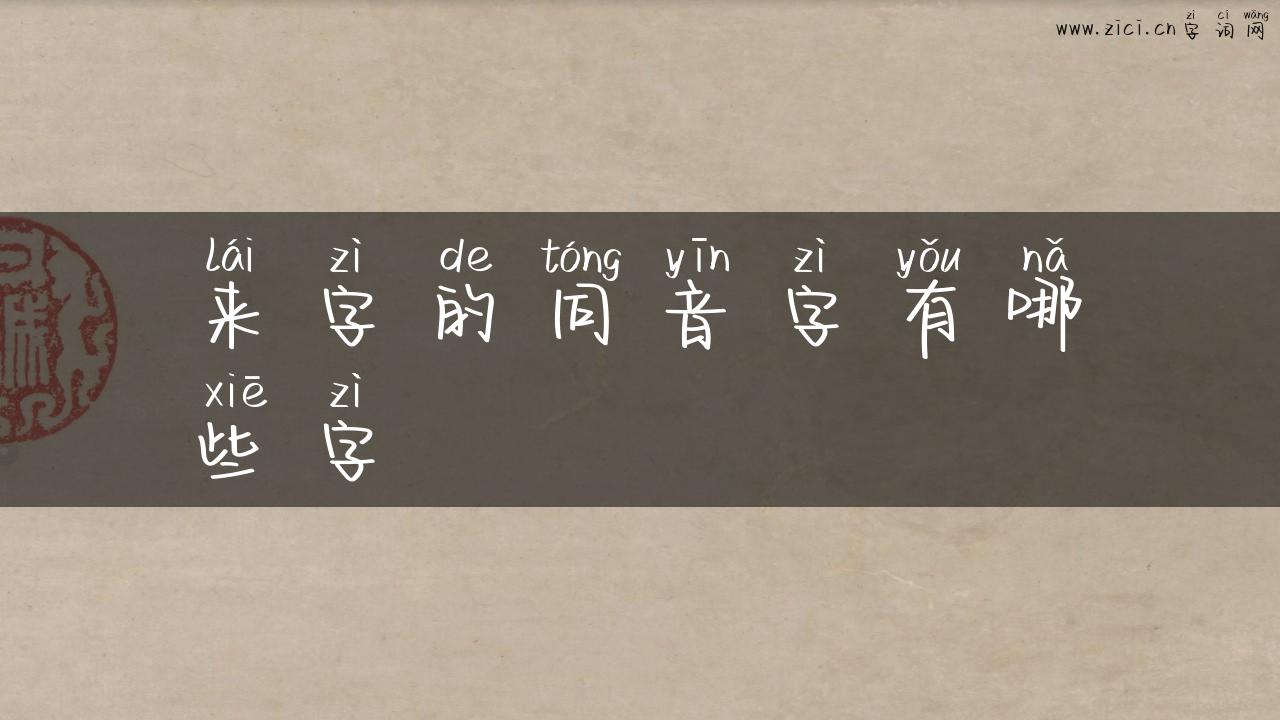 zì cí wǎng
www.zici.cn 字 词 网
lái zì de tóng yīn zì yǒu nǎ
来 字 的 同 音 字 有 哪
xiē zì
些 字